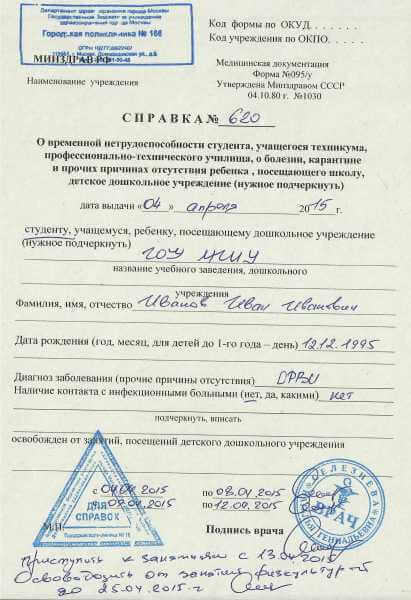 Департамент здравоохранения города Москвы
Государственное бюджетное учреждение
здравоохранения города Москвы
Городская поликлиника № 166
Код формы по ОКУД. . . . . . .
Код учреждения по ОКПО. . . . .
МИНЗДРАВ РФ
Наименование учреждения
Медицинская документация
Форма №095/у
Утверждена Минздравом СССР
04.10.80 г. №1030
СПРАВКА№ 620
О временной нетрудоспособности студента, учащегося техникума,
профессионально-технического училища, о болезни, карантине
и прочих причинах отсутствия ребенка , посещающего школу,
детское дошкольное учреждение (нужное подчеркнуть)
дата выдачи «04 » апреля 2015 г.
студенту, учащемуся, ребенку, посещающему дошкольное учреждение
(нужное подчеркнуть)
ГОУ МГИУ
название учебного заведения, дошкольного
учреждения
Фамилия, имя, отчество Иванов Иван Иванович
Дата рождения (год, месяц, для детей до 1-го года – день) 12.12.1995
Диагноз заболевания (прочие причины отсутствия) ОРВИ
Наличие контакта с инфекционными больными (нет, да, какими) нет
подчеркнуть, вписать
освобожден от занятий, посещений детского дошкольного учреждения
с 04.04.2015 по 08.04.2015
с 09.04.2015 по 12.04.2015
ДЛЯ
СПРАВОК
М.П.
Подпись врача
СЕЛЕЗНЕВА
ВРАЧ
ГЕННАДЬЕВНА
Приступить к занятиям с 13.04.2015
Освободить от занятий физкультурой
до 25.04.2015 г